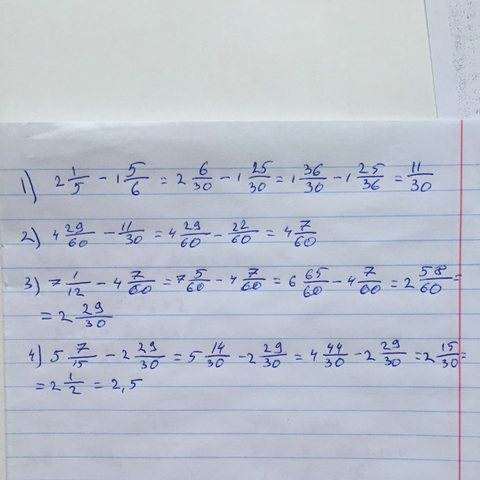 1) 2 1/5 - 1 5/6 = 2 6/30 - 1 25/30 = 1 36/30 - 1 25/36 = 11/30
2) 4 29/60 - 11/30 = 4 29/60 - 22/60 = 4 7/60
3) 7 1/12 - 4 7/60 = 7 5/60 - 4 7/60 = 6 65/60 - 4 7/60 = 2 58/60 =
= 2 29/30
4) 5 7/15 - 2 29/30 = 5 14/30 - 2 29/30 = 4 44/30 - 2 29/30 = 2 15/30 =
= 2 1/2 = 2,5